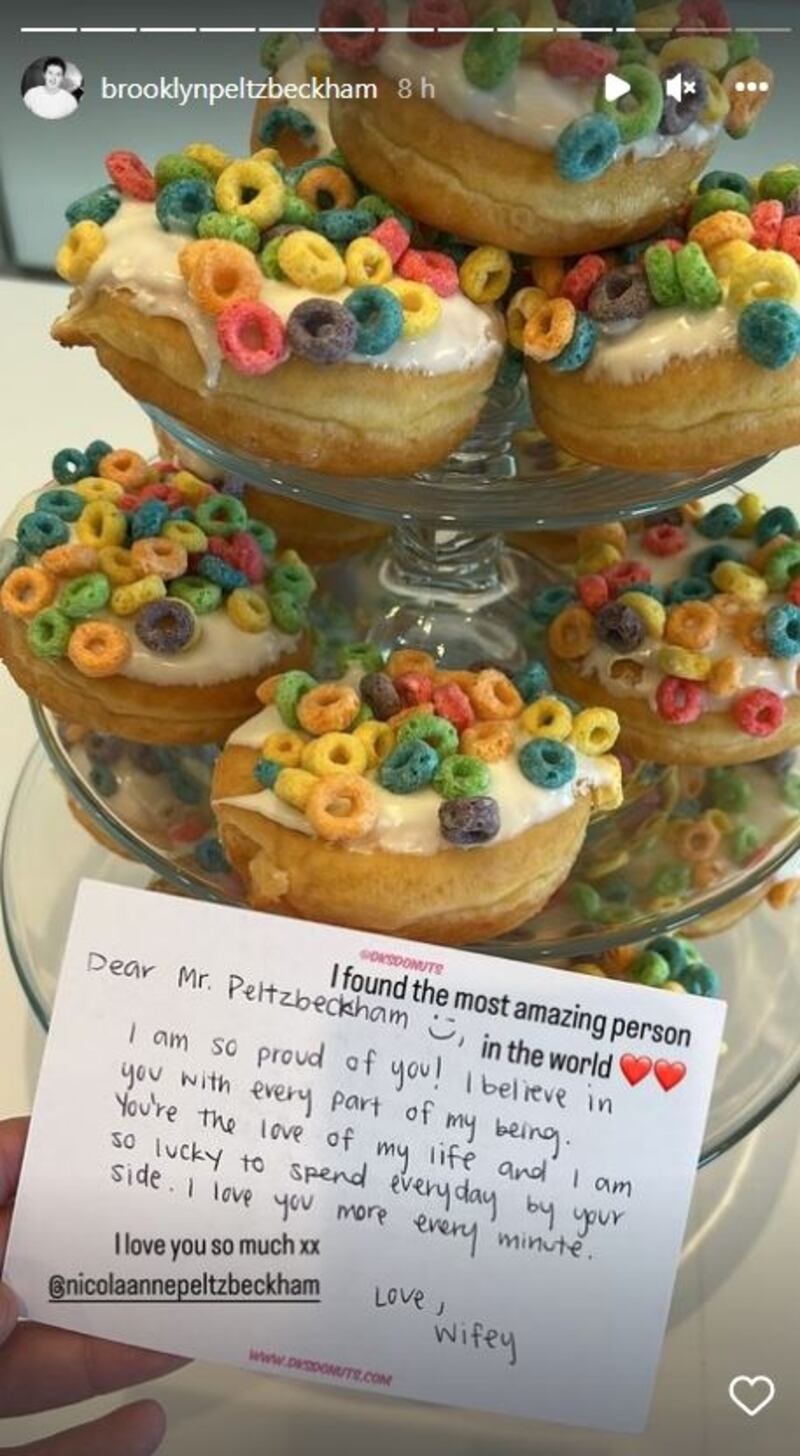 brooklynpeltzbeckham 8 h
@DKSDONUTS
I found the most amazing person
in the world ❤️❤️
Dear Mr. Peltzbeckham :),
I am so proud of you! I believe in
you with every part of my being.
You're the love of my life and I am
so lucky to spend everyday by your
side. I love you more every minute.
I love you so much xx
@nicolaannepeltzbeckham
Love,
Wifey
WWW.DKSDONUTS.COM